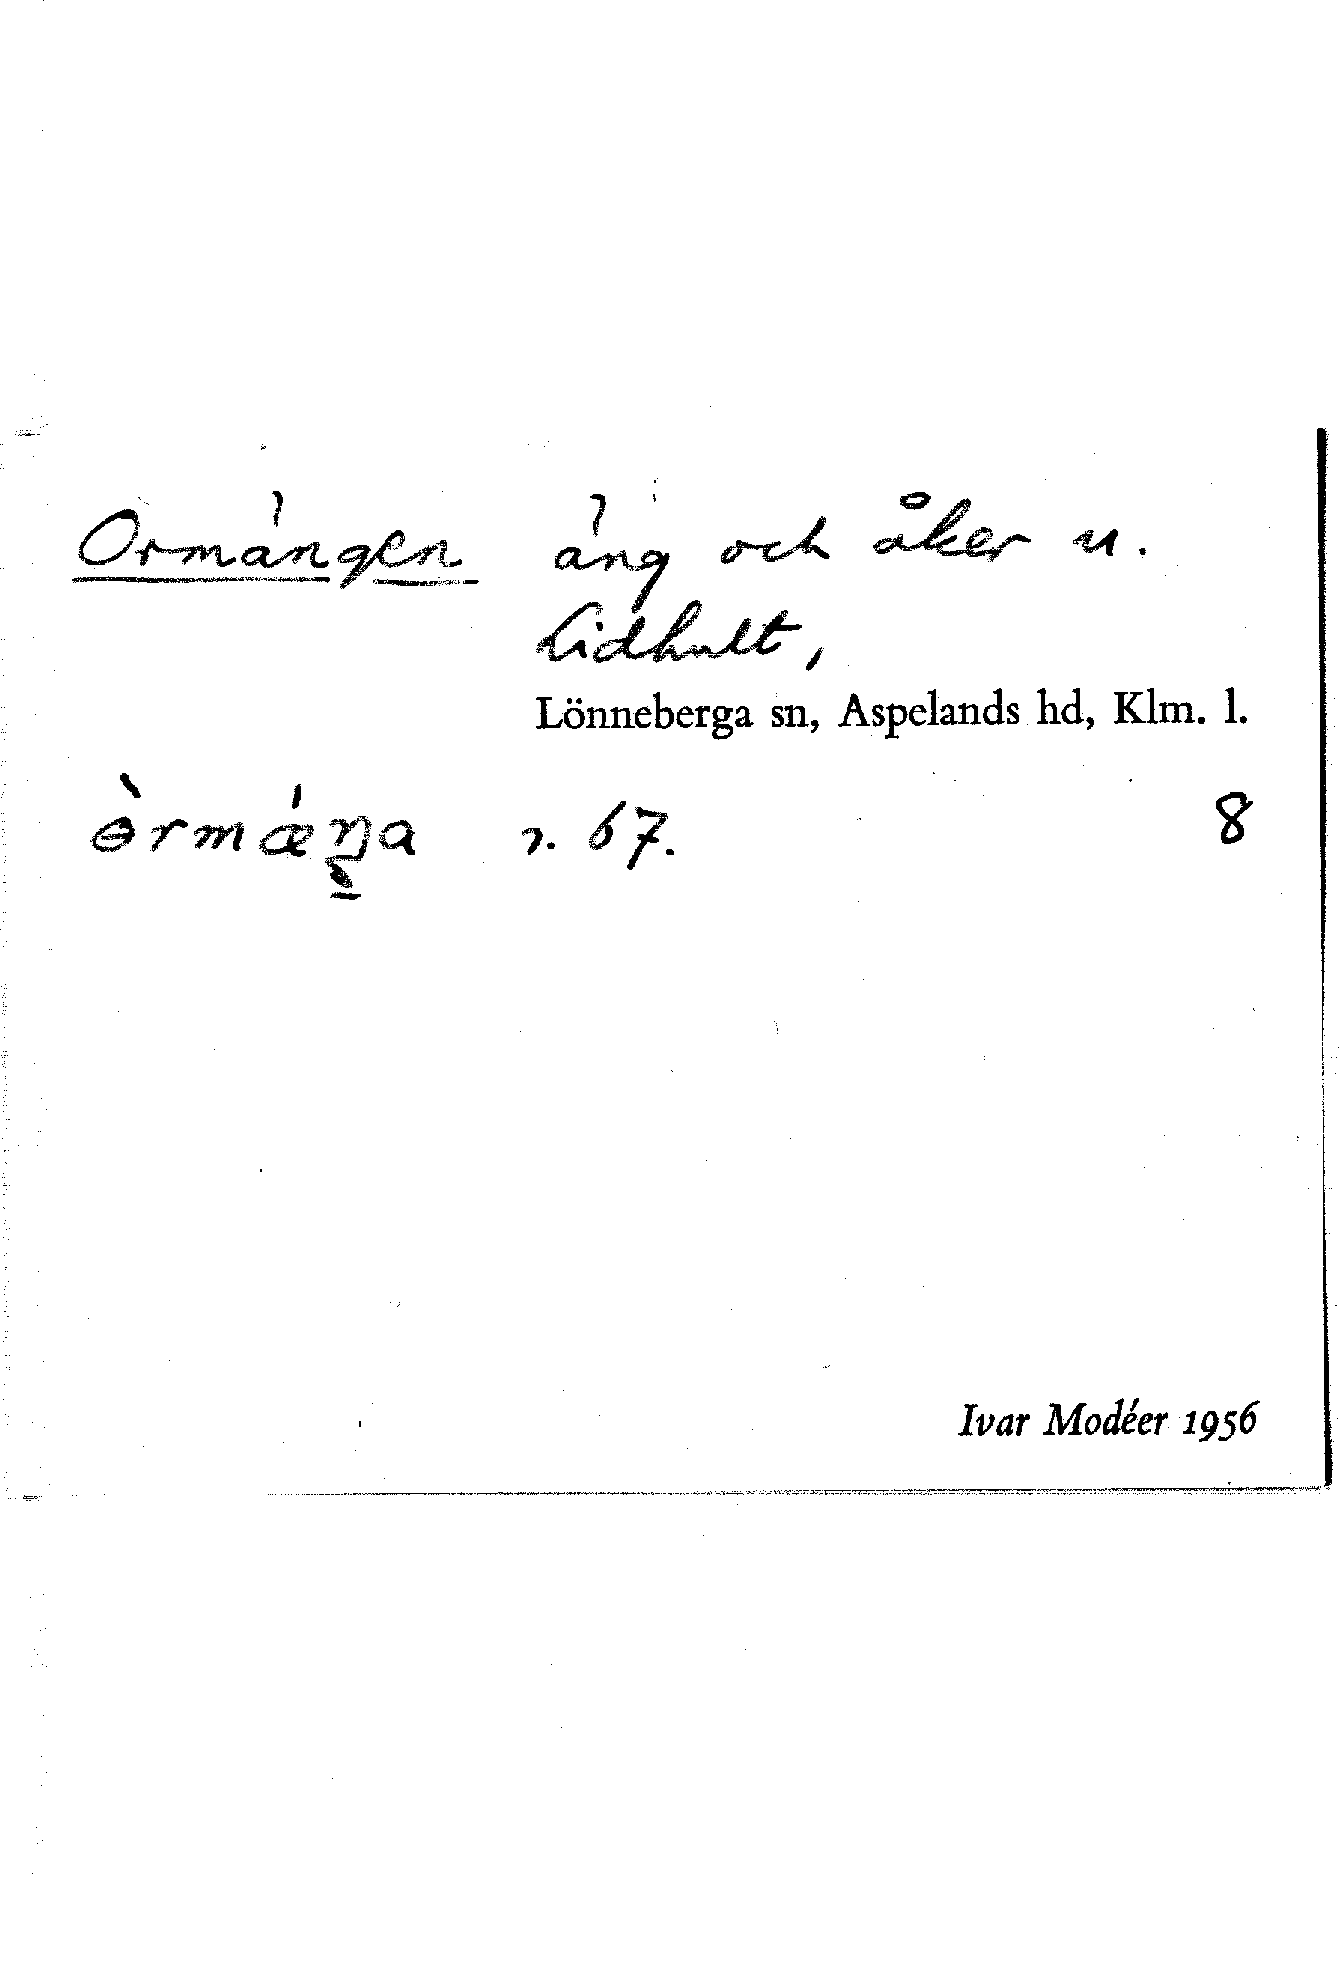 Ormängen äng och åker u.
Lidhult,
Lönneberga sn, Aspelands hd, Klm. l.
ɵ̀rmǽŋa r. 67. 8
Ivar Modéer 1956